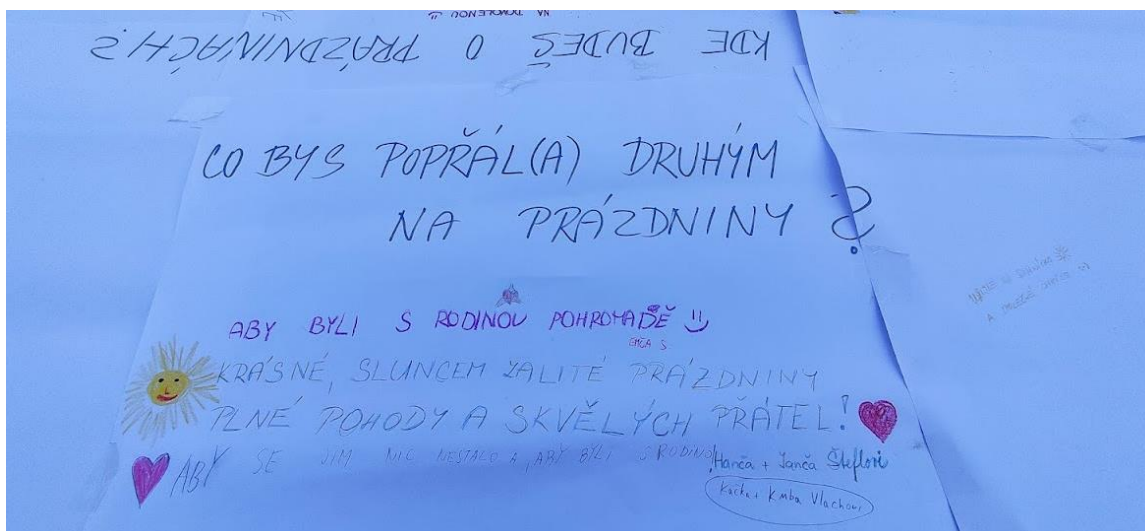 NA DOVOLENOU
KDE BUDEŠ O PRÁZDNINÁCH?
CO BYS POPŘÁL(A) DRUHÝM
NA PRÁZDNINY ?
ABY BYLI S RODINOU POHROMADĚ
EMČA S
KRÁSNÉ, SLUNCEM ZALITÉ PRÁZDNINY
PLNÉ POHODY A SKVĚLÝCH PŘÁTEL!
ABY SE JIM NIC NESTALO A, ABY BYLI S RODINOU
Hanča + Janča Šteflovi
Kačka + Kmba Vlachovi